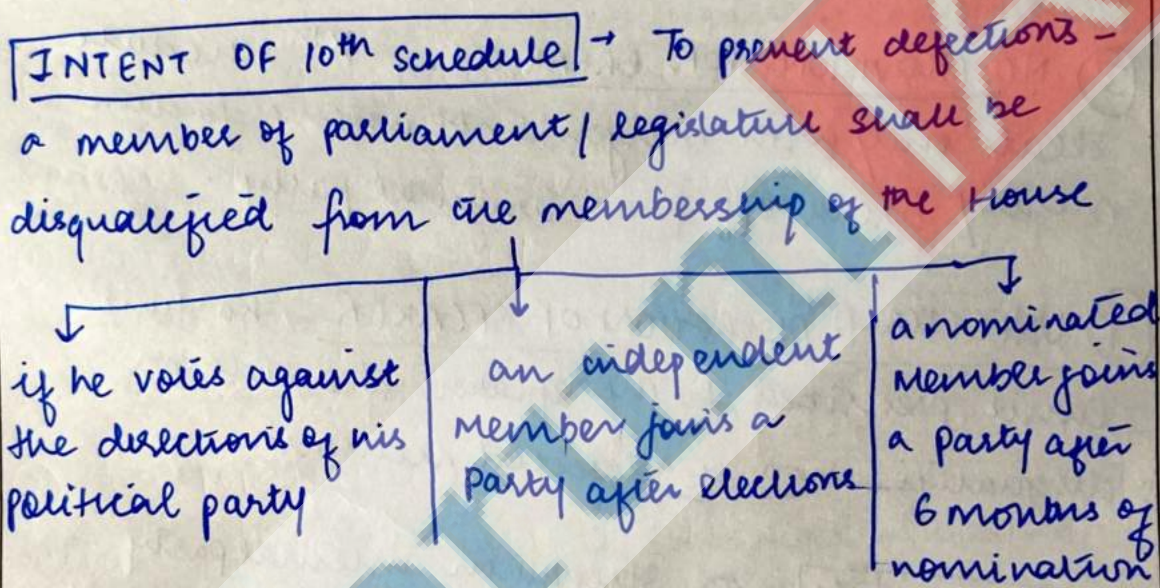 INTENT OF 10th schedule → To prevent defections -
a member of parliament / legislature shall be
disqualified from the membership of the House
if he votes against
the directions of his
political party
an independent
member joins a
party after elections
a nominated
member joins
a party after
6 months of
nomination